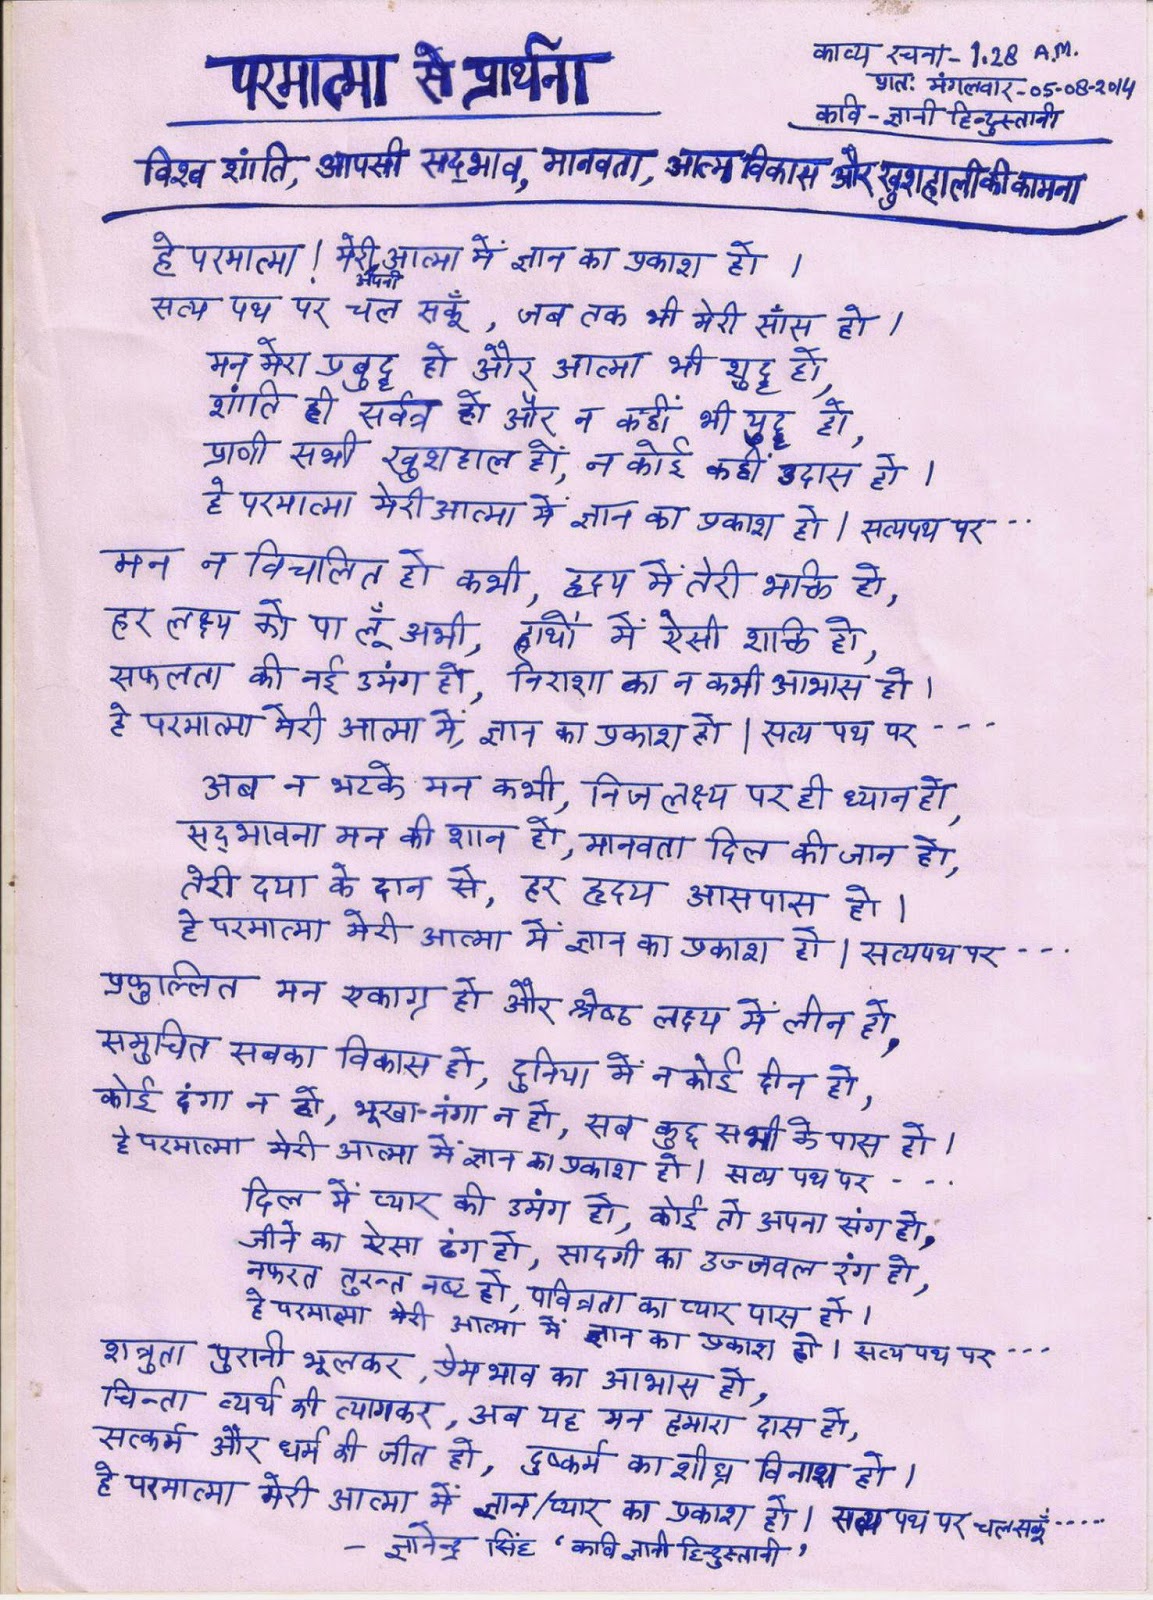 परमात्मा से प्रार्थना
काव्य रचना - 1.28 A.M.
प्रातः मंगलवार - 05-08-2014
कवि - ज्ञानी हिन्दुस्तानी
विश्व शांति, आपसी सद्‌भाव, मानवता, आत्म विकास और खुशहाली की कामना
हे परमात्मा ! मेरी आत्मा में ज्ञान का प्रकाश हो ।
अपनी
सत्य पथ पर चल सकूँ, जब तक भी मेरी साँस हो ।
मन मेरा प्रबुद्ध हो और आत्मा भी शुद्ध हो,
शांति ही सर्वत्र हो और न कहीं भी युद्ध हो,
प्राणी सभी खुशहाल हों, न कोई कहीं उदास हो ।
हे परमात्मा मेरी आत्मा में ज्ञान का प्रकाश हो । सत्यपथ पर ---
मन न विचलित हो कभी, हृदय में तेरी भक्ति हो,
हर लक्ष्य को पा लूँ अभी, हाथों में ऐसी शक्ति हो,
सफलता की नई उमंग हो, निराशा का न कभी आभास हो ।
हे परमात्मा मेरी आत्मा में, ज्ञान का प्रकाश हो । सत्य पथ पर ---
अब न भटके मन कभी, निज लक्ष्य पर ही ध्यान हो,
सद्‌भावना मन की शान हो, मानवता दिल की जान हो,
तेरी दया के दान से, हर हृदय आसपास हो ।
हे परमात्मा मेरी आत्मा में ज्ञान का प्रकाश हो । सत्यपथ पर ---
प्रफुल्लित मन एकाग्र हो और श्रेष्ठ लक्ष्य में लीन हो,
समुचित सबका विकास हो, दुनिया में न कोई दीन हो,
कोई दंगा न हो, भूखा-नंगा न हो, सब कुछ सभी के पास हो ।
हे परमात्मा मेरी आत्मा में ज्ञान का प्रकाश हो । सत्य पथ पर ---
दिल में प्यार की उमंग हो, कोई तो अपना संग हो,
जीने का ऐसा ढंग हो, सादगी का उज्जवल रंग हो,
नफरत तुरन्त नष्ट हो, पवित्रता का प्यार पास हो ।
हे परमात्मा मेरी आत्मा में ज्ञान का प्रकाश हो । सत्य पथ पर ---
शत्रुता पुरानी भूलकर, प्रेमभाव का आभास हो,
चिन्ता व्यर्थ की त्यागकर, अब यह मन हमारा दास हो,
सत्कर्म और धर्म की जीत हो, दुष्कर्म का शीघ्र विनाश हो ।
हे परमात्मा मेरी आत्मा में ज्ञान/प्यार का प्रकाश हो । सत्य पथ पर चल सकूँ -----
- ज्ञानेन्द्र सिंह 'कवि ज्ञानी हिन्दुस्तानी'